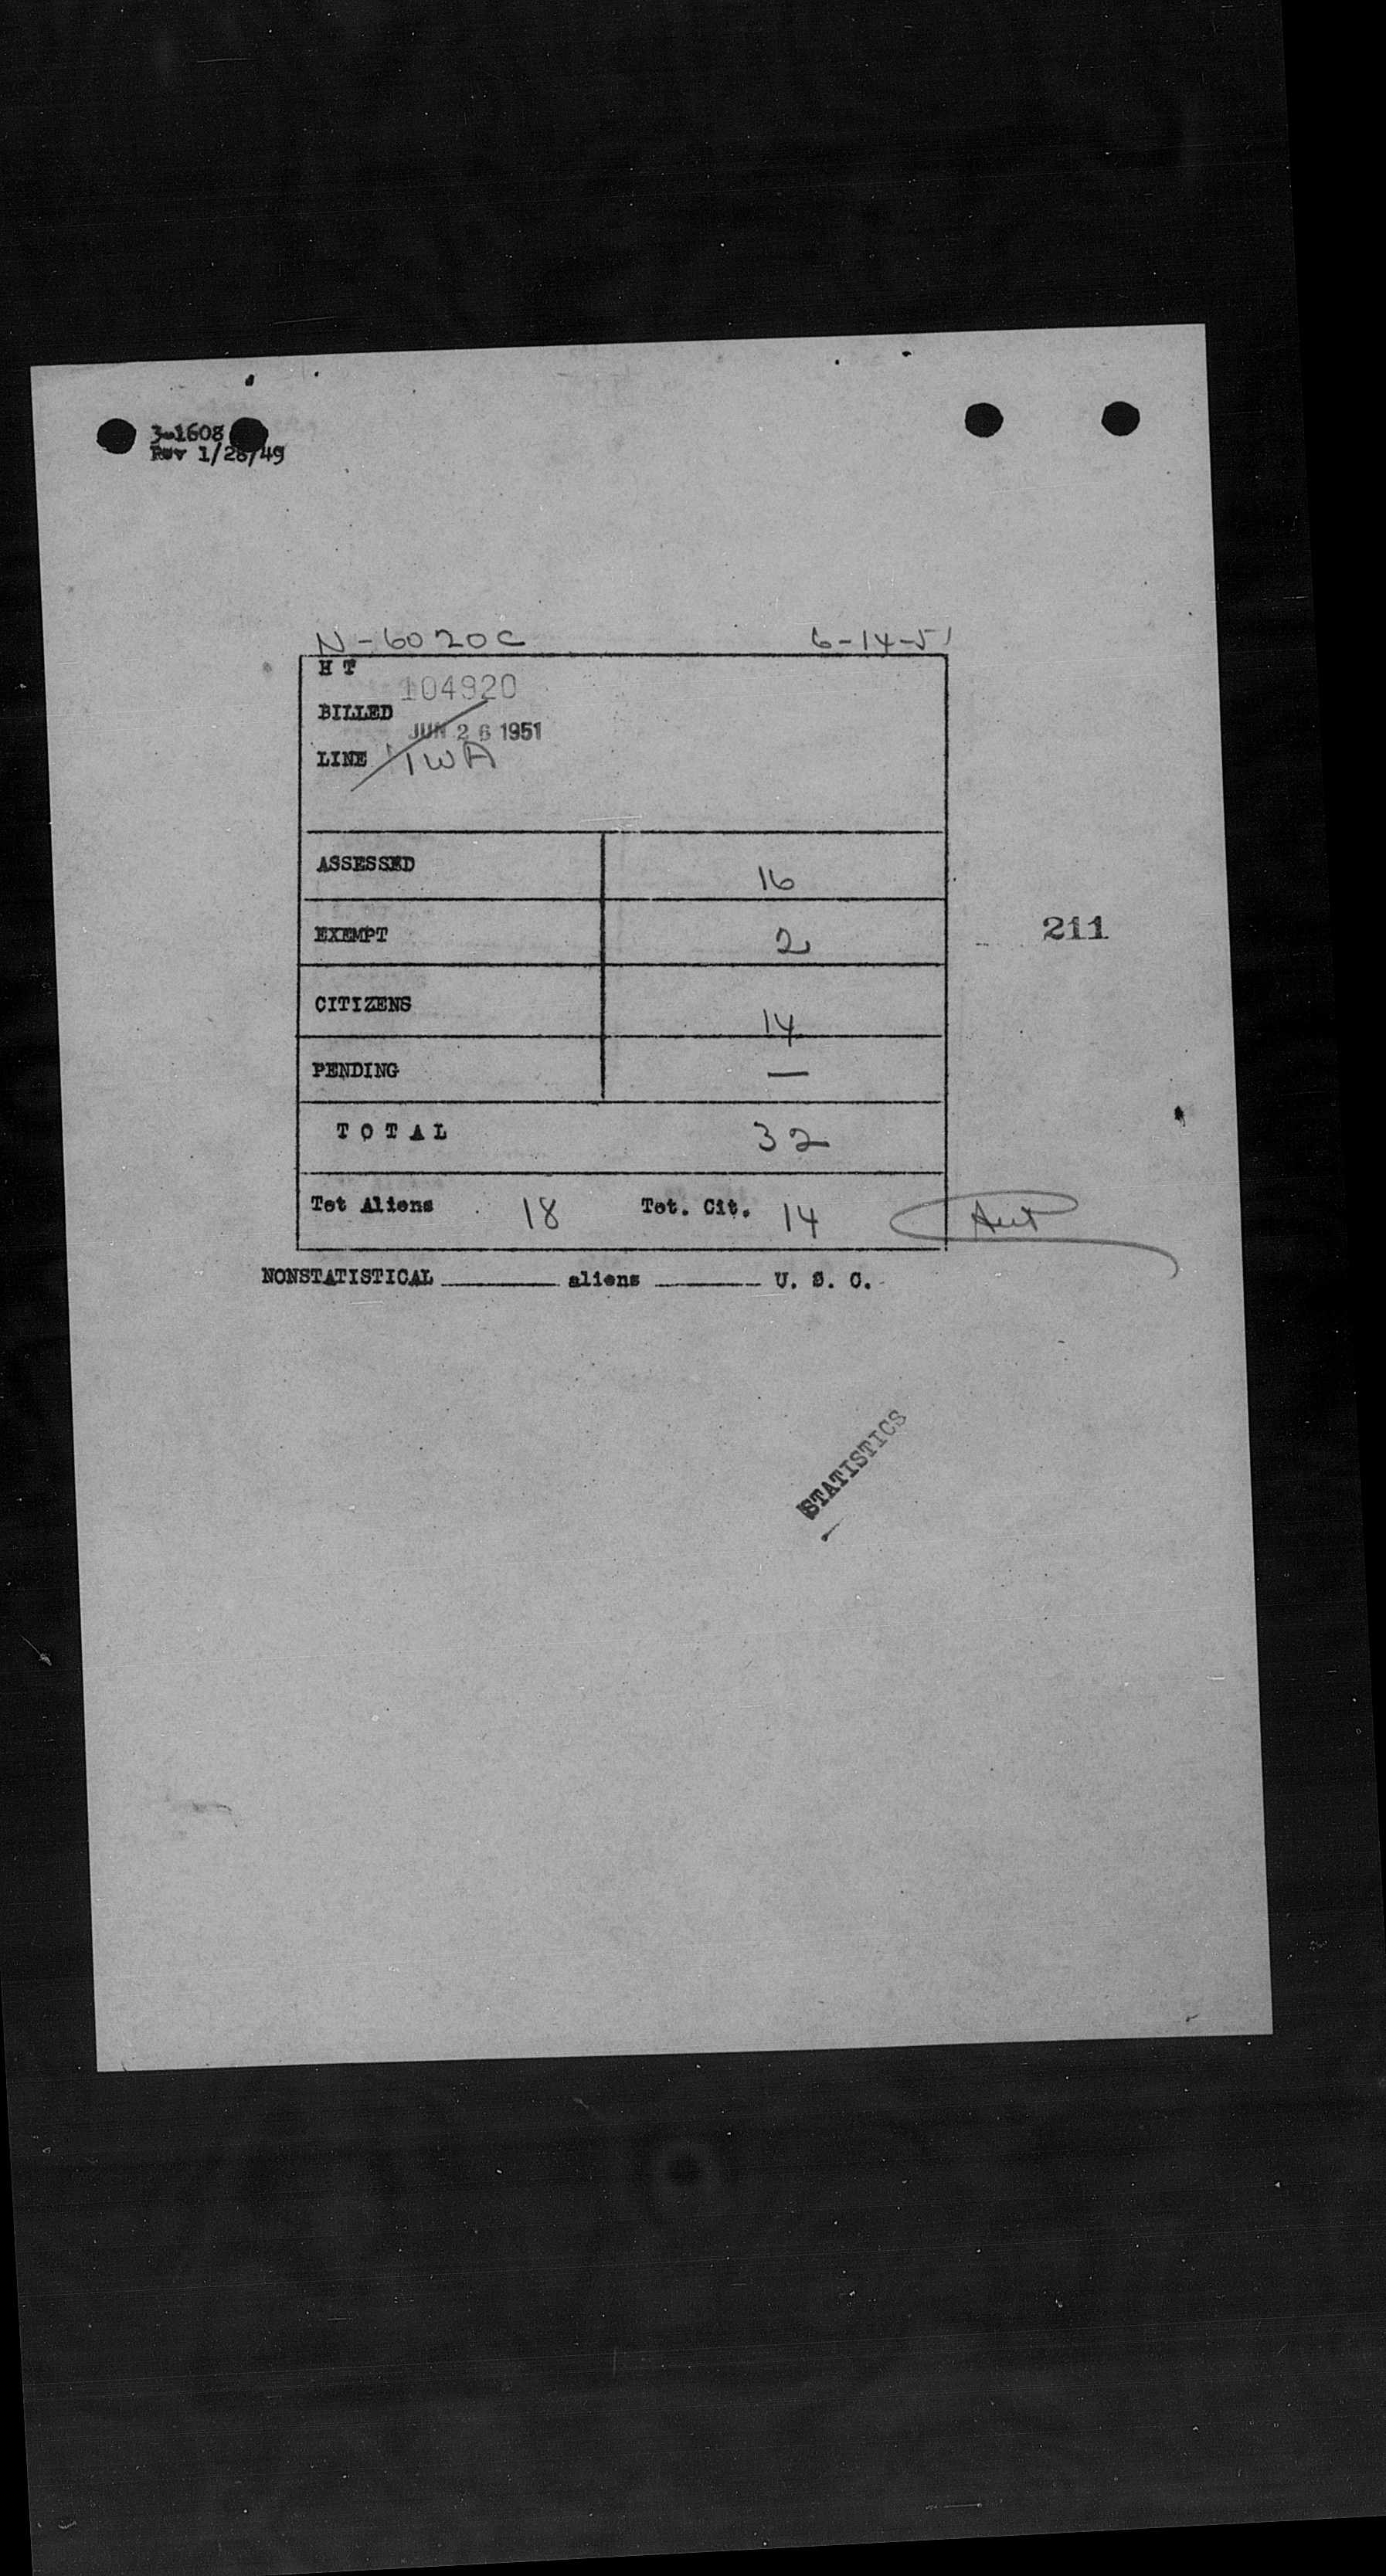 3-1608
Rev 1/28/49
N-6020C 6-14-51
H T
104920
BILLED
JUN 26 1951
LINE TWA
ASSESSED 16
EXEMPT 2
211
CITIZENS 14
PENDING —
T O T A L 32
Tot Aliens 18 Tot. Cit. 14
NONSTATISTICAL ________ aliens ________ U. S. C.
STATISTICS